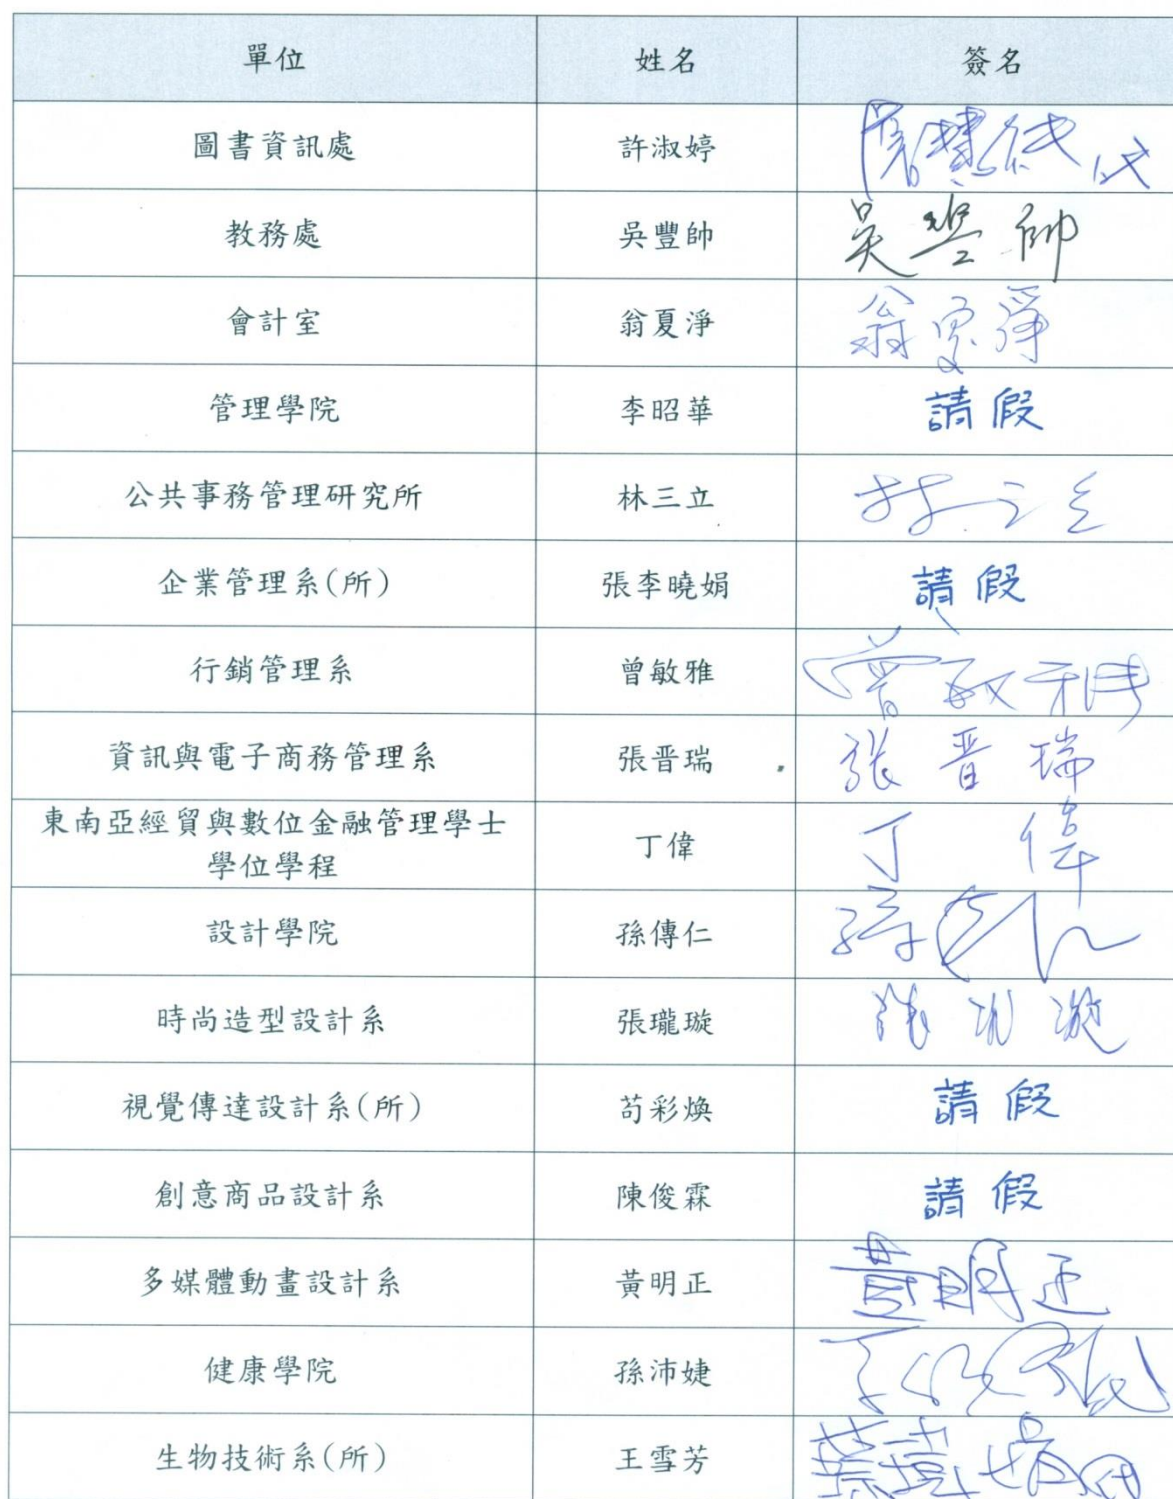 單位 姓名 簽名
圖書資訊處 許淑婷 代
教務處 吳豐帥 吳豐帥
會計室 翁夏淨 翁夏淨
管理學院 李昭華 請假
公共事務管理研究所 林三立 林三立
企業管理系(所) 張李曉娟 請假
行銷管理系 曾敏雅 曾敏雅
資訊與電子商務管理系 張晋瑞 張晋瑞
東南亞經貿與數位金融管理學士
學位學程 丁偉 丁偉
設計學院 孫傳仁 孫傳仁
時尚造型設計系 張瓏璇
視覺傳達設計系(所) 苟彩煥 請假
創意商品設計系 陳俊霖 請假
多媒體動畫設計系 黃明正 黃明正
健康學院 孫沛婕
生物技術系(所) 王雪芳